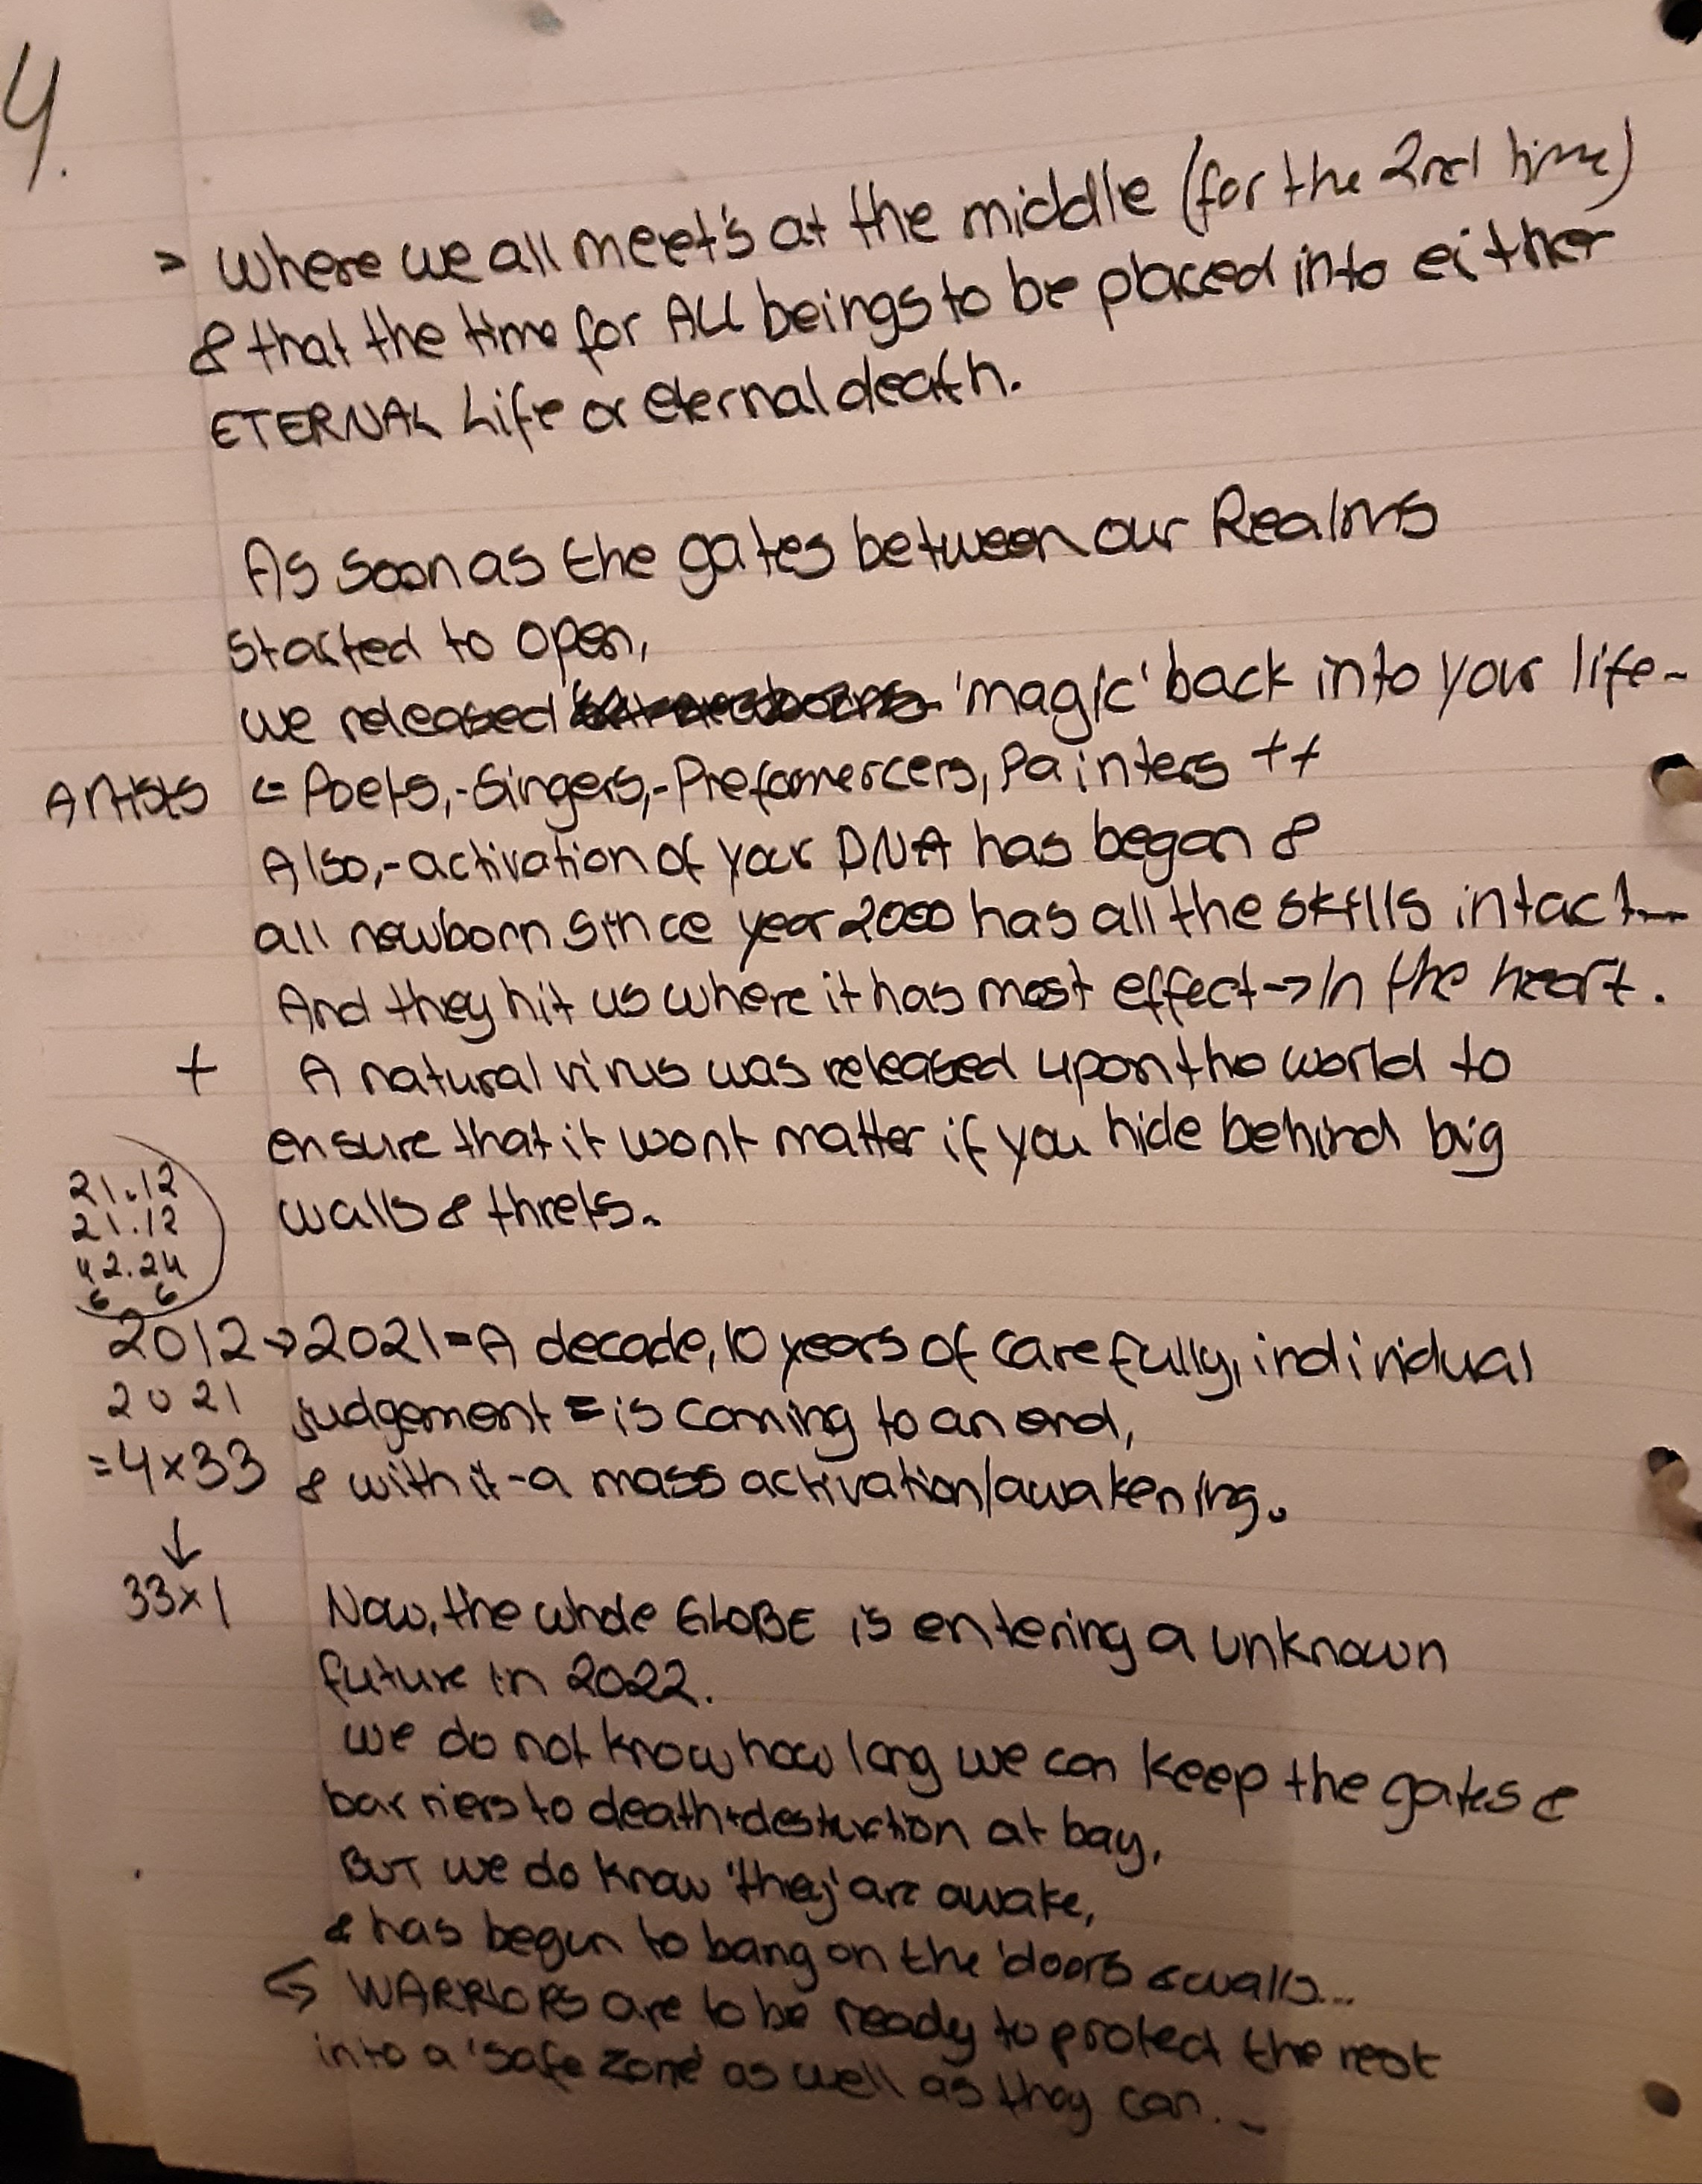 4.
> Where we all meet's at the middle (for the 2nd time)
& that the time for ALL beings to be placed into either
ETERNAL Life or eternal death.
As soon as the gates between our Realms
started to open,
we released 'magic' back into your life-
Artists <= Poets,-Singers,-Preformercers, Painters ++
Also,-activation of your DNA has began &
all newborn since year 2000 has all the skills intact...
And they hit us where it has most effect→In the heart.
+ A natural virus was released upon the world to
ensure that it wont matter if you hide behind big
walls & threts.
21.12
21.12
42.24
6 6
2012→2021=A decade, 10 years of carefully, individual
2021 judgement = is coming to an end,
=4x33 & with it-a mass activation/awakening.
↓
33x1 Now, the whole GLOBE is entering a unknown
future in 2022.
we do not know how long we can keep the gates &
barriers to death+destruction at bay,
BUT we do know 'they' are awake,
& has begun to bang on the 'doors & walls...
WARRIORS are to be ready to protect the rest
into a 'safe zone' as well as they can..-